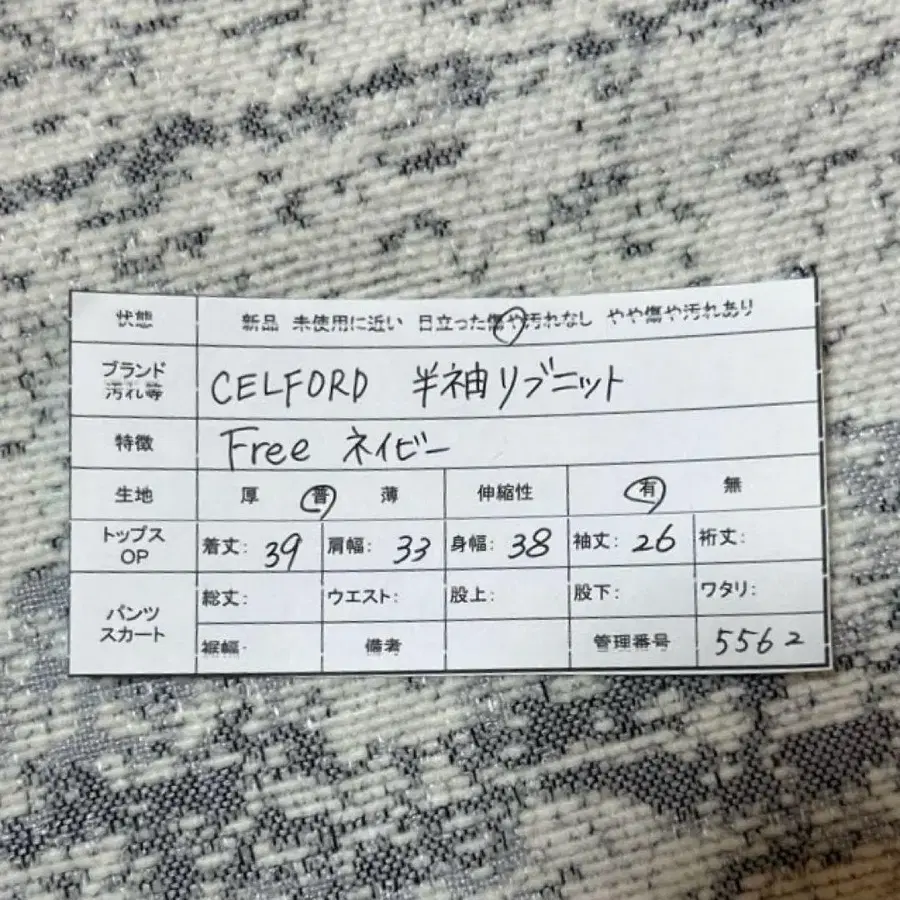 状態 新品 未使用に近い 目立った傷や汚れなし やや傷や汚れあり
ブランド
汚れ等 CELFORD 半袖リブニット
特徴 Free ネイビー
生地 厚 普 薄 伸縮性 有 無
トップス
OP 着丈: 39 肩幅: 33 身幅: 38 袖丈: 26 裄丈:
パンツ
スカート 総丈: ウエスト: 股上: 股下: ワタリ:
裾幅: 備考 管理番号 5562